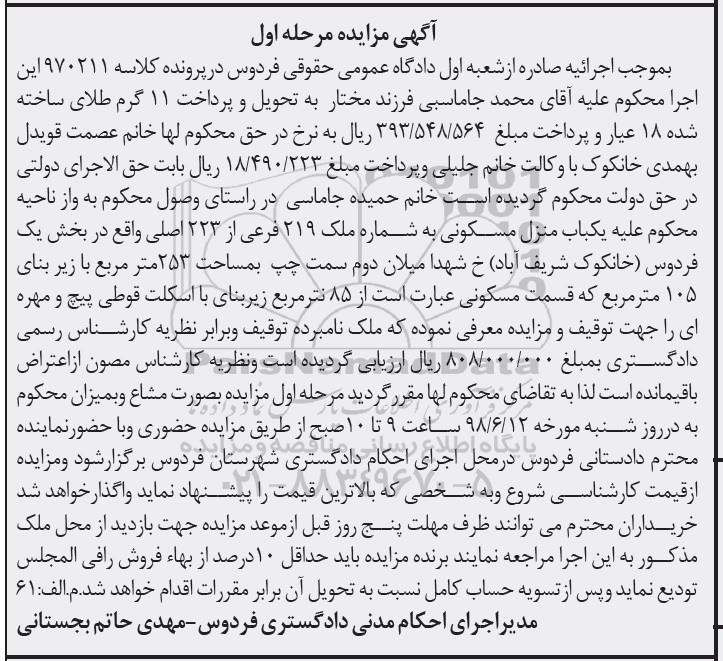 آگهی مزایده مرحله اول
بموجب اجرائیه صادره ازشعبه اول دادگاه عمومی حقوقی فردوس درپرونده کلاسه ۹۷۰۲۱۱ این
اجرا محکوم علیه آقای محمد جاماسبی فرزند مختار به تحویل و پرداخت ۱۱ گرم طلای ساخته
شده ۱۸ عیار و پرداخت مبلغ ۳۹۳/۵۴۸/۵۶۴ ریال به نرخ در حق محکوم لها خانم عصمت قویدل
بهمدی خانکوک با وکالت خانم جلیلی وپرداخت مبلغ ۱۸/۴۹۰/۲۲۳ ریال بابت حق الاجرای دولتی
در حق دولت محکوم گردیده است خانم حمیده جاماسی در راستای وصول محکوم به واز ناحیه
محکوم علیه یکباب منزل مسکونی به شماره ملک ۲۱۹ فرعی از ۲۲۳ اصلی واقع در بخش یک
فردوس (خانکوک شریف آباد) خ شهدا میلان دوم سمت چپ بمساحت ۲۵۳متر مربع با زیر بنای
۱۰۵ مترمربع که قسمت مسکونی عبارت است از ۸۵ نترمربع زیربنای با اسکلت قوطی پیچ و مهره
ای را جهت توقیف و مزایده معرفی نموده که ملک نامبرده توقیف وبرابر نظریه کارشناس رسمی
دادگستری بمبلغ ۸۰۸/۰۰۰/۰۰۰ ریال ارزیابی گردیده است ونظریه کارشناس مصون ازاعتراض
باقیمانده است لذا به تقاضای محکوم لها مقرر گردید مرحله اول مزایده بصورت مشاع وبمیزان محکوم
به درروز شنبه مورخه ۹۸/۶/۱۲ ساعت ۹ تا ۱۰صبح از طریق مزایده حضوری وبا حضورنماینده
محترم دادستانی فردوس درمحل اجرای احکام دادگستری شهرستان فردوس برگزارشود ومزایده
ازقیمت کارشناسی شروع وبه شخصی که بالاترین قیمت را پیشنهاد نماید واگذارخواهد شد
خریداران محترم می توانند ظرف مهلت پنج روز قبل ازموعد مزایده جهت بازدید از محل ملک
مذکور به این اجرا مراجعه نمایند برنده مزایده باید حداقل ۱۰درصد از بهاء فروش رافی المجلس
تودیع نماید وپس ازتسویه حساب کامل نسبت به تحویل آن برابر مقررات اقدام خواهد شد.م.الف:۶۱
مدیراجرای احکام مدنی دادگستری فردوس-مهدی حاتم بجستانی
ParsNamadData
پایگاه اطلاع رسانی مناقصه و مزایده
۰۲۱-۸۸۳۴۹۶۷۰-۵